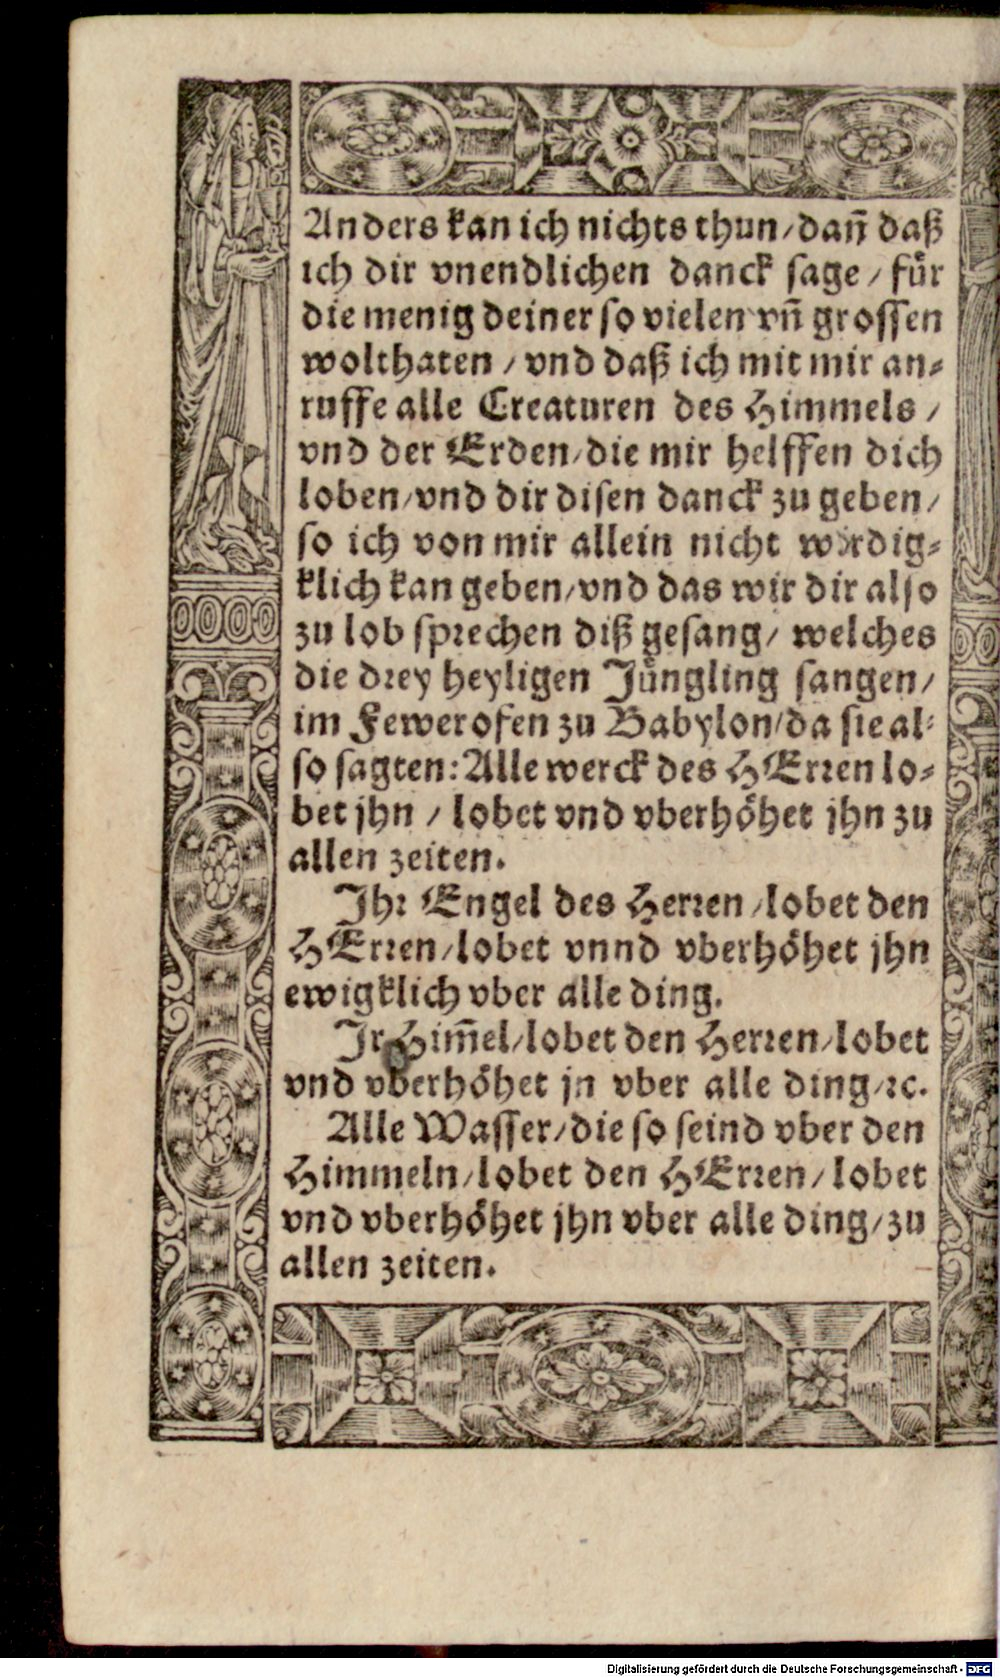 Anders kan ich nichts thun/dañ daß
ich dir vnendlichen danck sage / fuͤr
die menig deiner so vielen vñ grossen
wolthaten / vnd daß ich mit mir an⸗
ruffe alle Creaturen des Himmels /
vnd der Erden/die mir helffen dich
loben/vnd dir disen danck zu geben/
so ich von mir allein nicht wirdig⸗
klich kan geben/vnd das wir dir also
zu lob sprechen diß gesang/ welches
die drey heyligen Juͤngling sangen/
im Fewerofen zu Babylon/da sie al⸗
so sagten: Alle werck des HErren lo⸗
bet jhn / lobet vnd vberhoͤhet jhn zu
allen zeiten.
Jhr Engel des Herren/lobet den
HErren/lobet vnnd vberhoͤhet jhn
ewigklich vber alle ding.
Jr Him̃el/lobet den Herren/lobet
vnd vberhoͤhet jn vber alle ding/ꝛc.
Alle Wasser/die so seind vber den
Himmeln/lobet den HErren/lobet
vnd vberhoͤhet jhn vber alle ding/zu
allen zeiten.
Digitalisierung gefördert durch die Deutsche Forschungsgemeinschaft - DFG